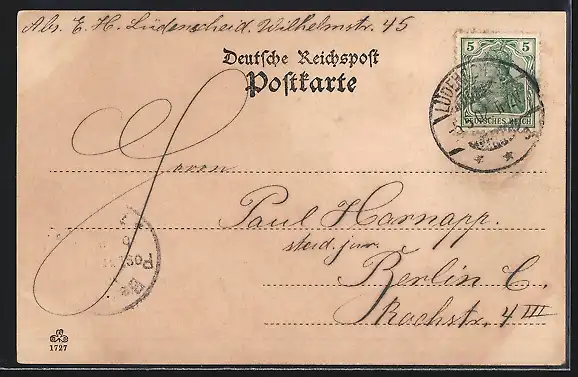 Abs. E. H. Lüdenscheid. Wilhelmstr. 45
Deutsche Reichspost
Postkarte
5 5
DEUTSCHES REICH
LÜDEN
Herrn
Paul Harnapp.
stud. jur.
Berlin C.
Rochstr. 4 III
Post
1727